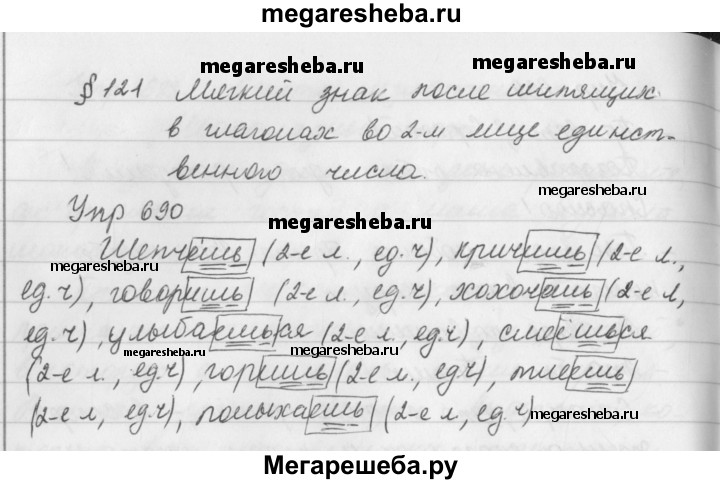 megaresheba.ru
megaresheba.ru
megaresheba.ru
§ 121 Мягкий знак после шипящих
в глаголах во 2-м лице единст-
венного числа.
megaresheba.ru
Упр 690
megaresheba.ru
Шепчешь (2-е л., ед.ч), кричишь (2-е л.,
megaresheba.ru
megaresheba.ru
ед.ч), говоришь (2-е л., ед.ч), хохочешь (2-е л,
ед.ч), улыбаешься (2-е л., ед.ч), смеёшься
megaresheba.ru
megaresheba.ru
(2-е л., ед.ч), горишь (2-е л., ед.ч), тлеешь
(2-е л, ед.ч), полыхаешь (2-е л, ед.ч)
megaresheba.ru
Мегарешеба.ру